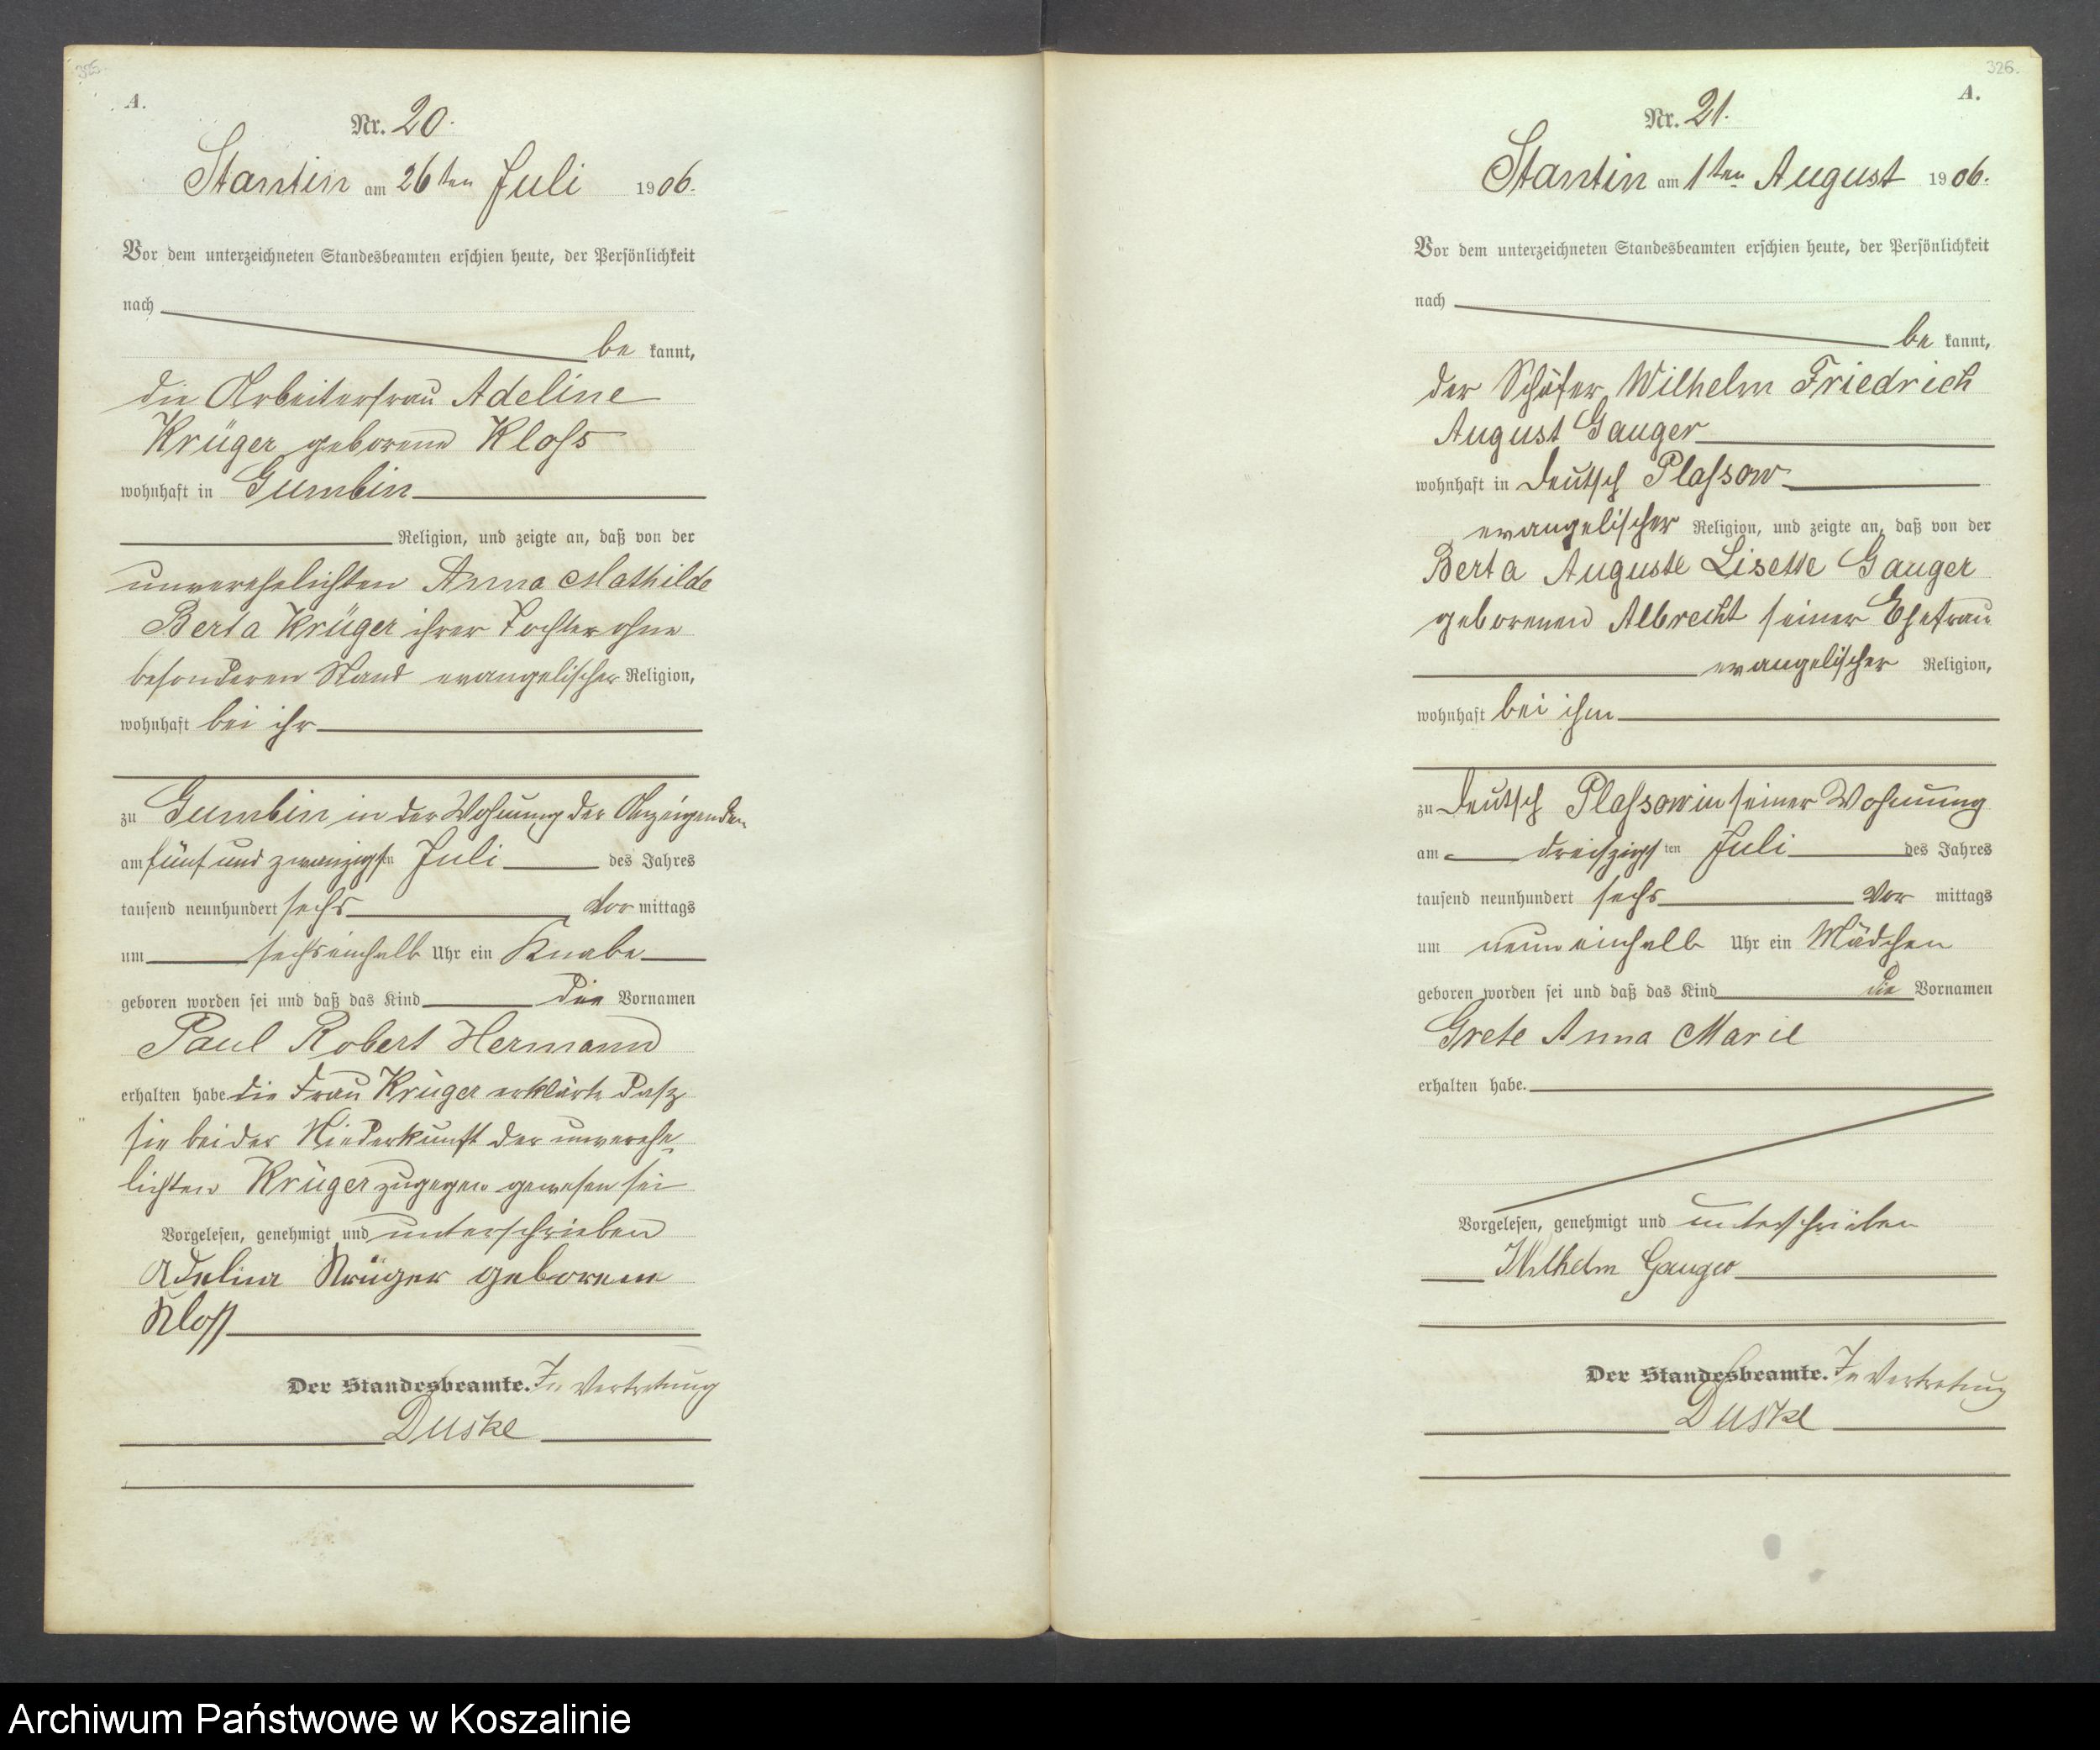 325.
A.
Nr. 20.
Stantin am 26ten Juli 1906.
Vor dem unterzeichneten Standesbeamten erschien heute, der Persönlichkeit
nach
be kannt,
die Arbeiterfrau Adeline
Krüger geborene Kloss
wohnhaft in Gumbin
Religion, und zeigte an, daß von der
unverehelichten Anna Mathilde
Berta Krüger ihrer Tochter ohne
besonderen Stand evangelischer Religion,
wohnhaft bei ihr
zu Gumbin in der Wohnung der Anzeigenden
am fünf und zwanzigsten Juli des Jahres
tausend neunhundert sechs Vor mittags
um sechseinhalb Uhr ein Knabe
geboren worden sei und daß das Kind die Vornamen
Paul Robert Hermann
erhalten habe die Frau Krüger erklärte dasz
sie bei der Niederkunft der unverehe
lichten Krüger zugegen gewesen sei
Vorgelesen, genehmigt und unterschrieben
Adeline Krüger geborene
Kloss
Der Standesbeamte. In Vertretung
Duske
326.
A.
Nr. 21.
Stantin am 1ten August 1906.
Vor dem unterzeichneten Standesbeamten erschien heute, der Persönlichkeit
nach
be kannt,
der Schäfer Wilhelm Friedrich
August Gauger
wohnhaft in Deutsch Plassow
evangelischer Religion, und zeigte an, daß von der
Berta Auguste Lisette Gauger
geborenen Albrecht seiner Ehefrau
evangelischer Religion,
wohnhaft bei ihm
zu Deutsch Plassow in seiner Wohnung
am dreiszigsten Juli des Jahres
tausend neunhundert sechs Vor mittags
um neun einhalb Uhr ein Mädchen
geboren worden sei und daß das Kind die Vornamen
Grete Anna Marie
erhalten habe.
Vorgelesen, genehmigt und unterschrieben
Wilhelm Gauger
Der Standesbeamte. In Vertretung
Duske
Archiwum Państwowe w Koszalinie